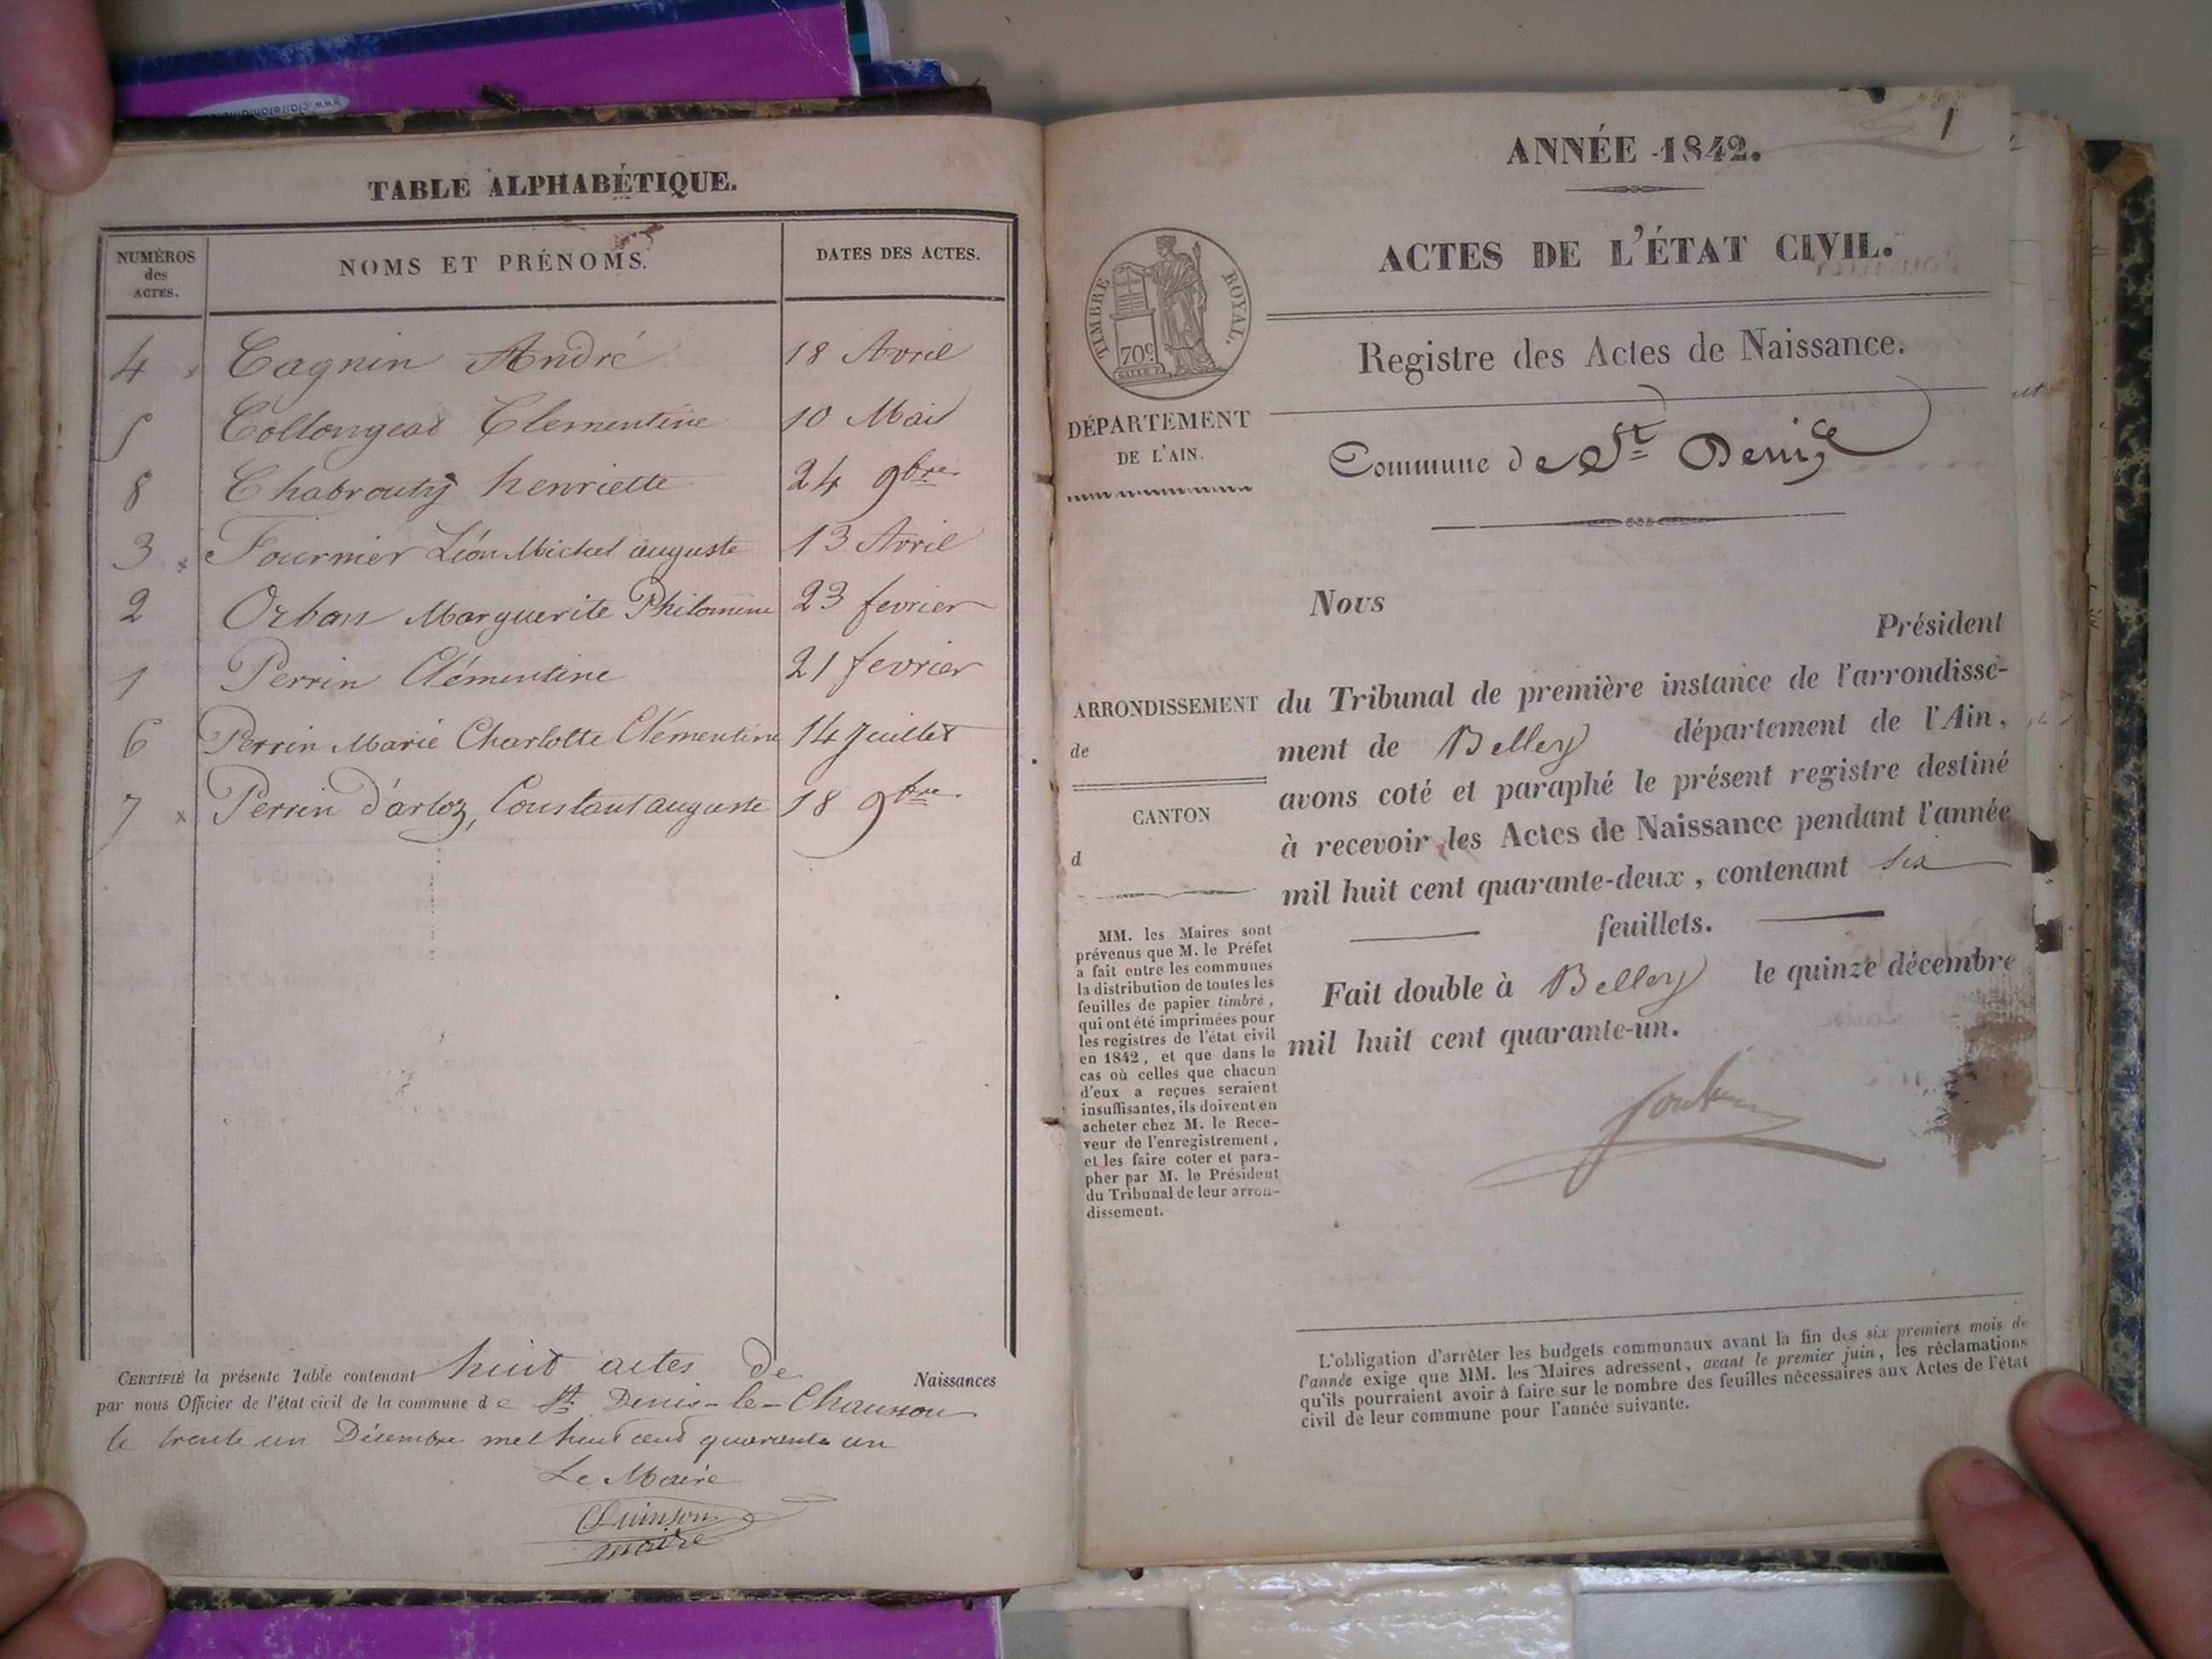 TABLE ALPHABÉTIQUE.
NUMÉROS
des
ACTES.
NOMS ET PRÉNOMS.
DATES DES ACTES.
4 Cagnin André 18 Avril
5 Collongeat Clementine 10 Mai
8 Chabrouty henriette 24 9bre
3 x Fournier Léon Michel auguste 13 Avril
2 Orban Marguerite Philomene 23 fevrier
1 Perrin Clémentine 21 fevrier
6 Perrin Marie Charlotte Clémentine 14 Juillet
7 x Perrin d'arloz, Constant auguste 18 9bre
CERTIFIÉ la présente Table contenant huit actes de Naissances
par nous Officier de l'état civil de la commune de St Denis-le-Chausson
le trente un Décembre mil huit cent quarante un
Le Maire
Quinson
maire
1
ANNÉE 1842.
ACTES DE L'ÉTAT CIVIL.
TIMBRE ROYAL.
70c
Registre des Actes de Naissance.
DÉPARTEMENT
DE L'AIN.
Commune de St Denis
Nous
Président
ARRONDISSEMENT
de
CANTON
d
du Tribunal de première instance de l'arrondisse-
ment de Belley département de l'Ain,
avons coté et paraphé le présent registre destiné
à recevoir les Actes de Naissance pendant l'année
mil huit cent quarante-deux, contenant six
feuillets.
Fait double à Belley le quinze décembre
mil huit cent quarante-un.
MM. les Maires sont
prévenus que M. le Préfet
a fait entre les communes
la distribution de toutes les
feuilles de papier timbré,
qui ont été imprimées pour
les registres de l'état civil
en 1842, et que dans le
cas où celles que chacun
d'eux a reçues seraient
insuffisantes, ils doivent en
acheter chez M. le Rece-
veur de l'enregistrement,
et les faire coter et para-
pher par M. le Président
du Tribunal de leur arron-
dissement.
L'obligation d'arrêter les budgets communaux avant la fin des six premiers mois de
l'année exige que MM. les Maires adressent, avant le premier juin, les réclamations
qu'ils pourraient avoir à faire sur le nombre des feuilles nécessaires aux Actes de l'état
civil de leur commune pour l'année suivante.